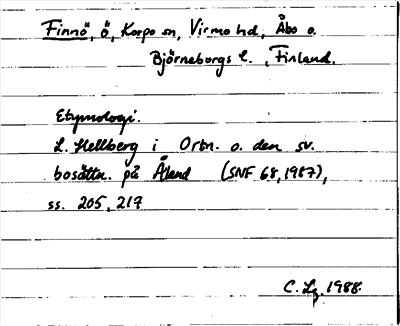 Finnö, ö, Korpo sn, Virmo hd, Åbo o.
Björneborgs l., Finland.
Etymologi.
L. Hellberg i Ortn. o. den sv.
bosättn. på Åland (SNF 68, 1987),
ss. 205, 219
C. Lg. 1988.